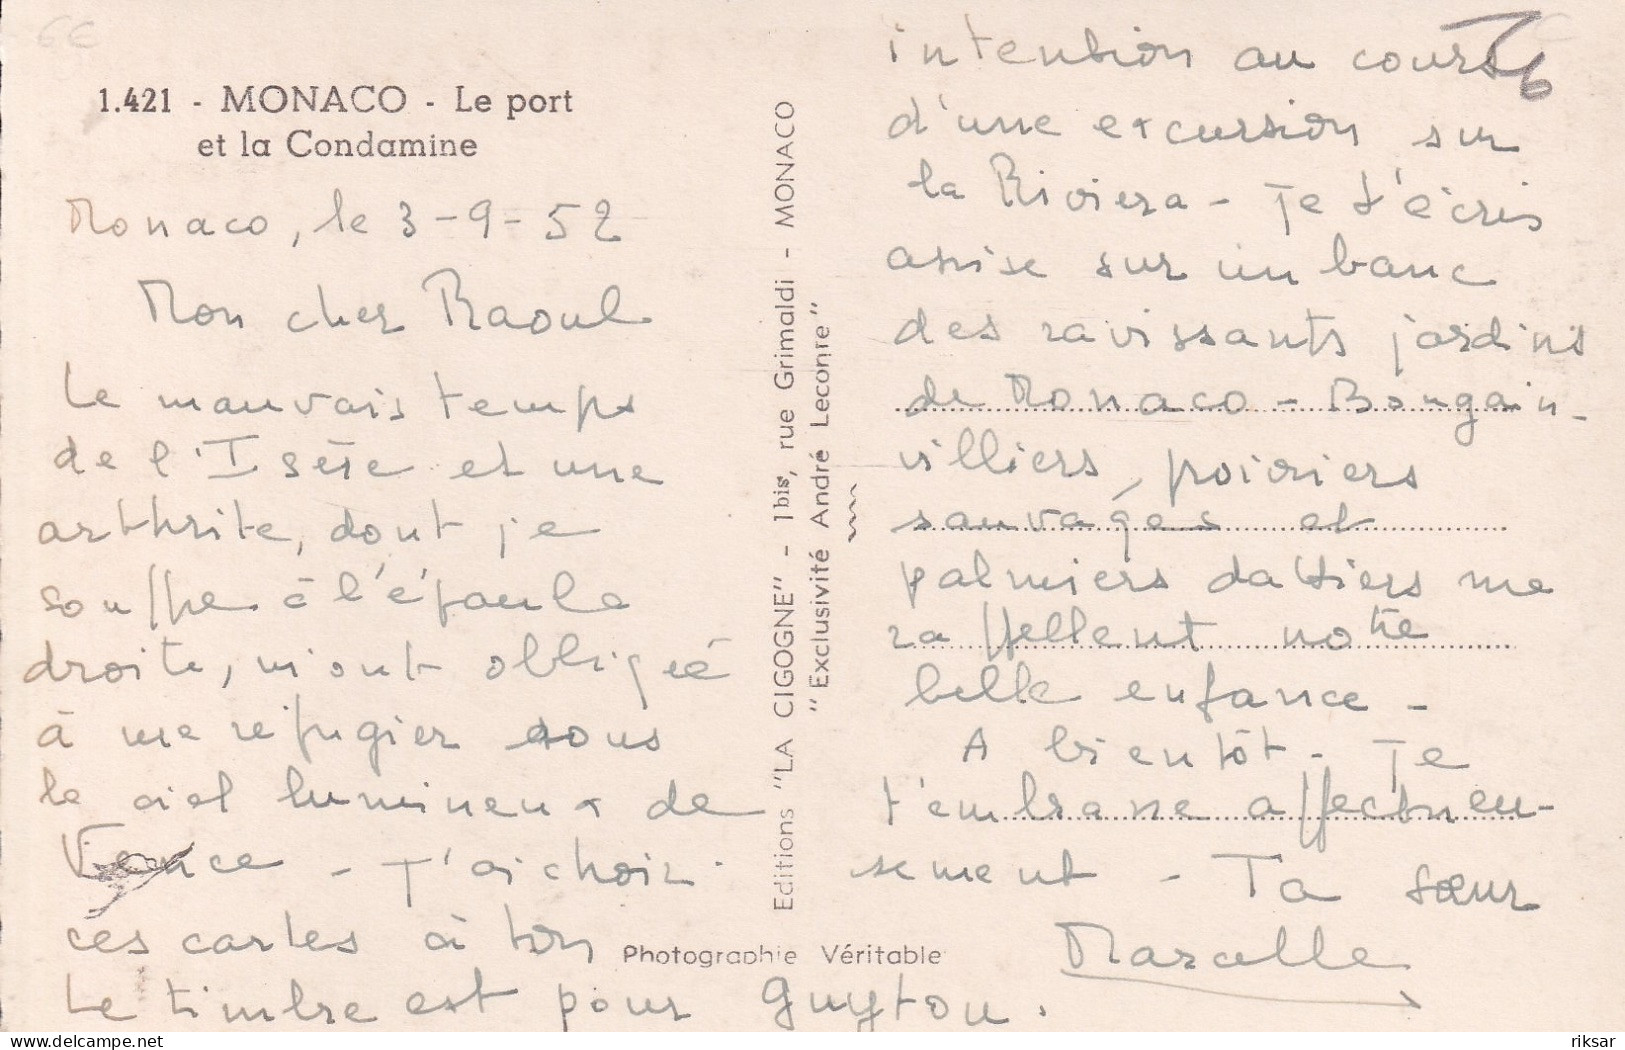 6€
1.421 - MONACO - Le port
et la Condamine
Monaco, le 3-9-52
Mon cher Raoul
Le mauvais temps
de l'Isère et une
arthrite, dont je
souffre à l'épaule
droite, m'ont obligée
à me réfugier sous
le ciel lumineux de
Vence - J'ai choisi
ces cartes à ton
intention au cours
d'une excursion sur
la Riviera - Je t'écris
assise sur un banc
des ravissants jardins
de Monaco - Bougain-
villiers, poivriers
sauvages et
palmiers dattiers me
rappellent notre
belle enfance -
A bientôt - Je
t'embrasse affectueu-
sement - Ta sœur
Marcelle
Le timbre est pour Guyton.
Editions "LA CIGOGNE" - 1 bis, rue Grimaldi - MONACO
"Exclusivité André Leconte"
Photographie Véritable
riksar